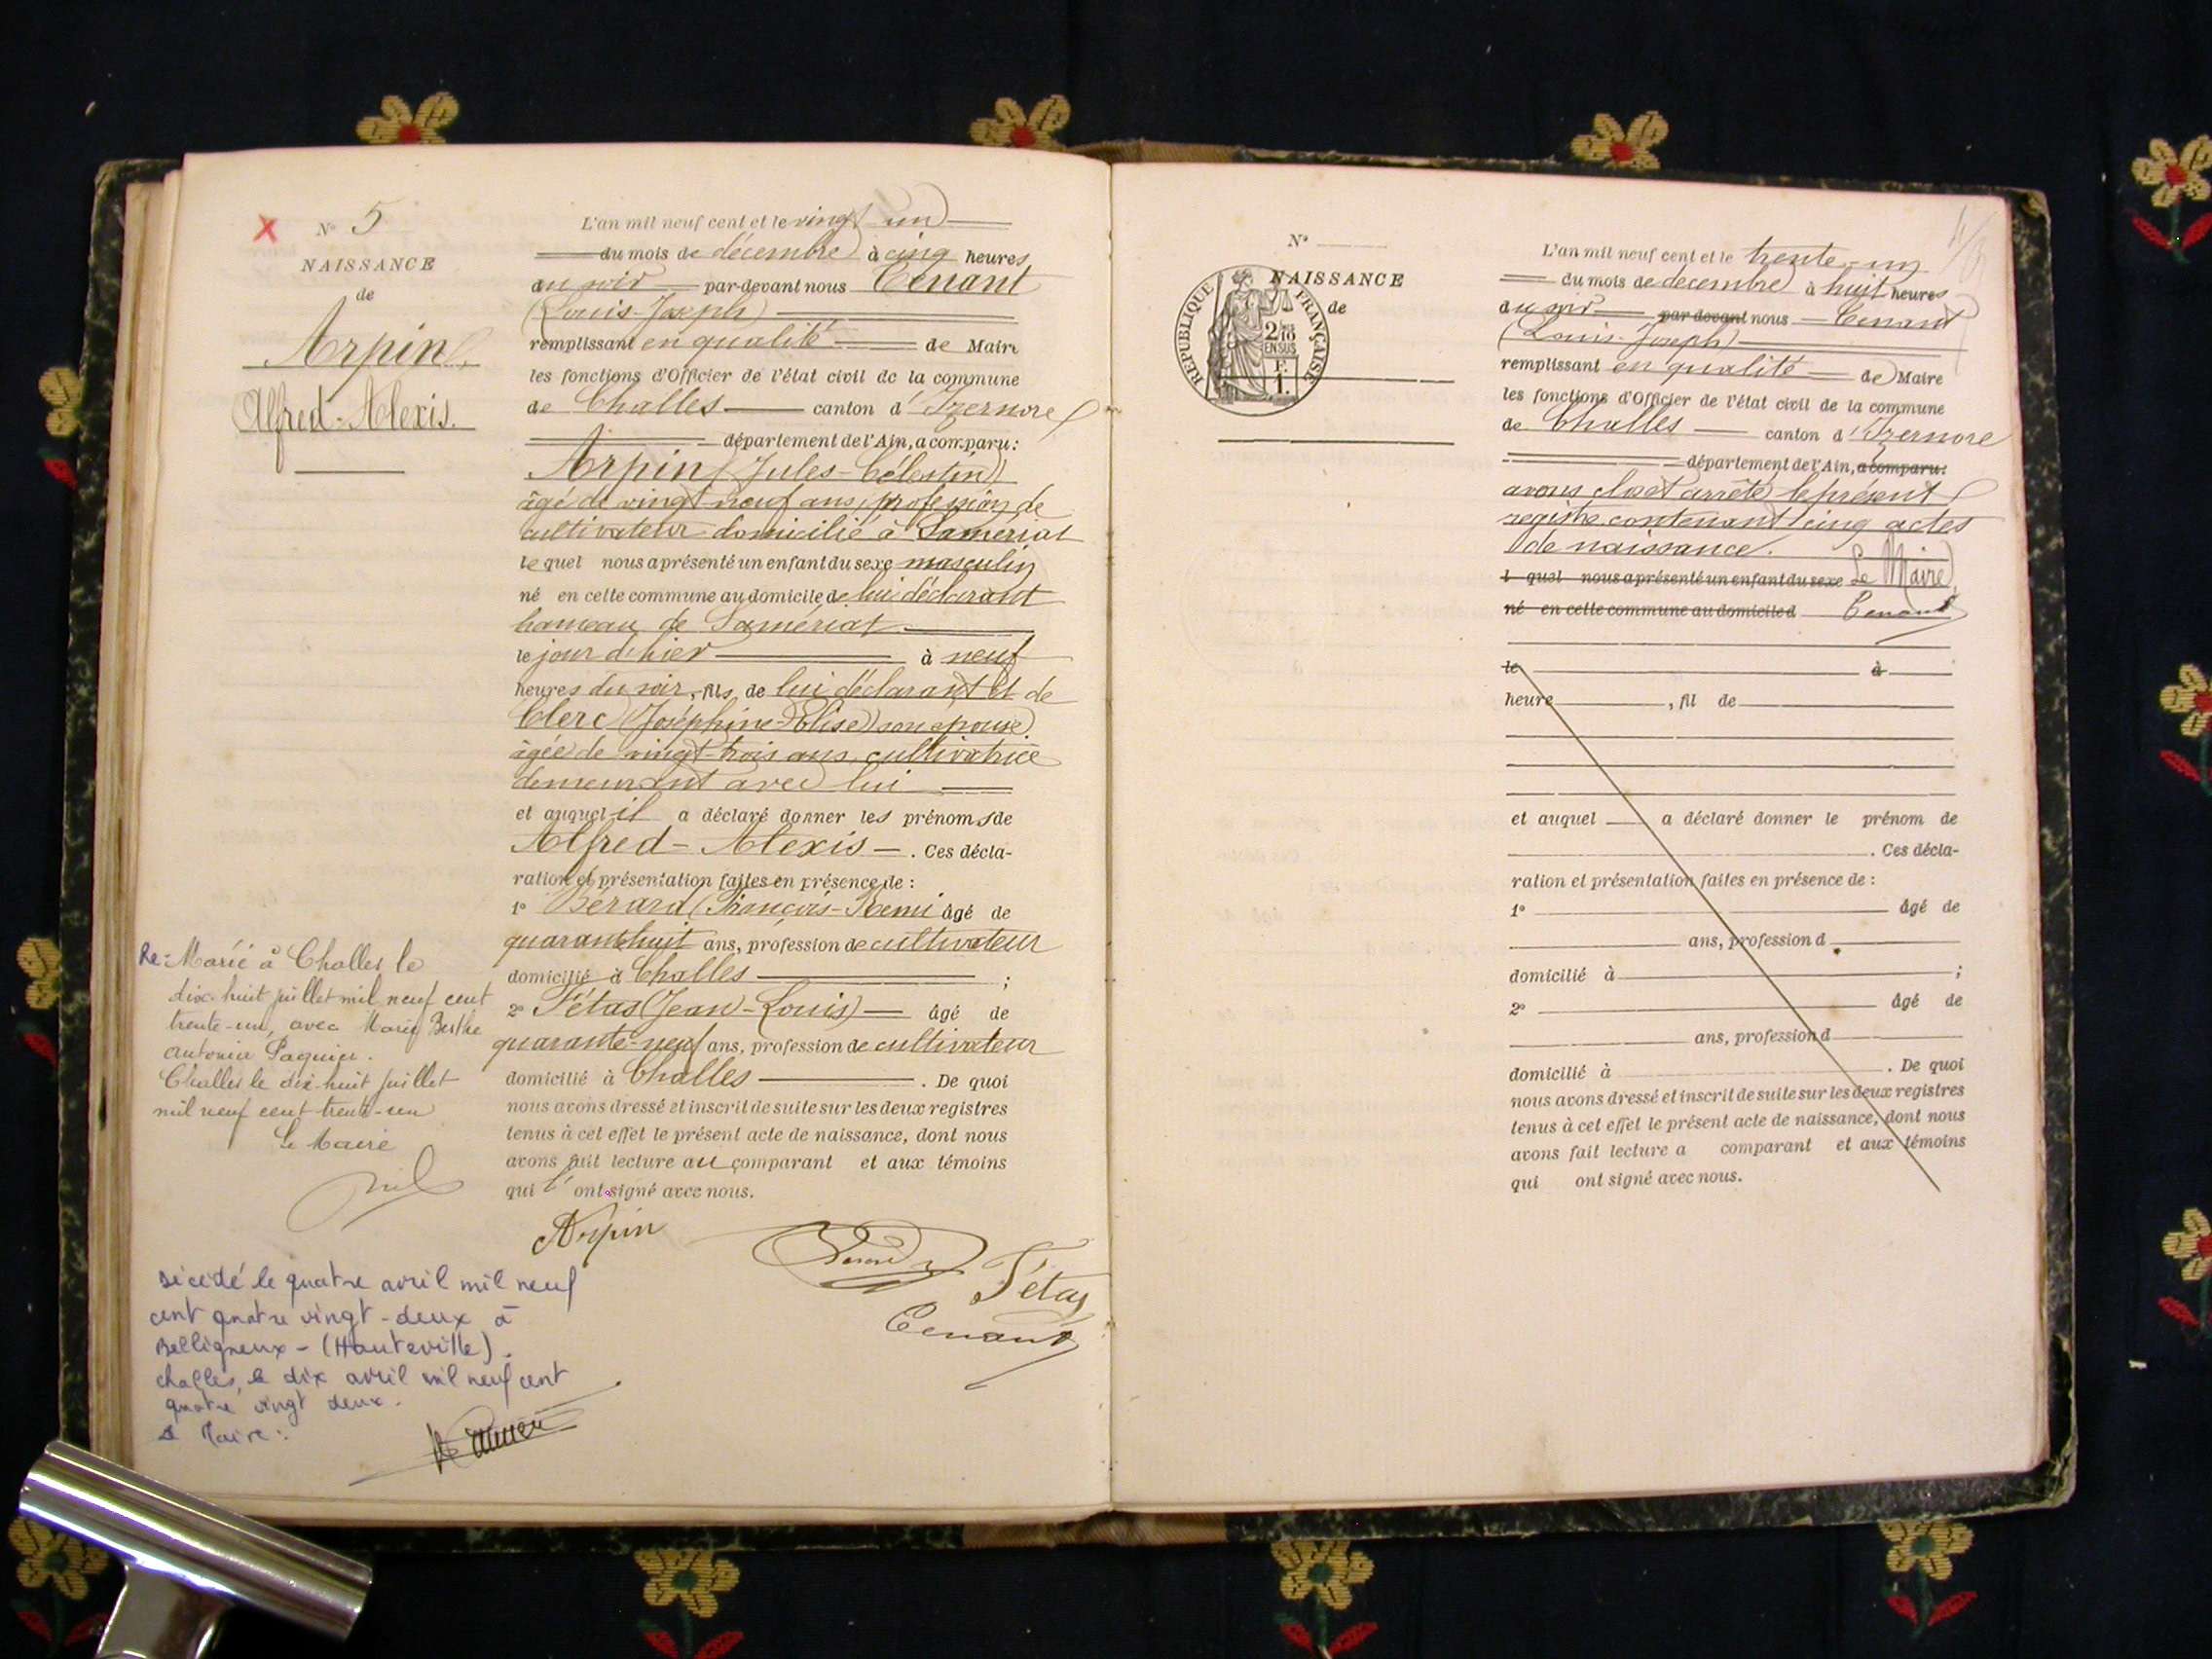 N° 5
NAISSANCE
de
Arpin
Alfred-Alexis.
L'an mil neuf cent et le vingt un
du mois de décembre à cinq heures
du soir par-devant nous Tenant
(Louis-Joseph)
remplissant en qualité de Maire
les fonctions d'Officier de l'état civil de la commune
de Challes canton d'Izernore
département de l'Ain, a comparu:
Arpin (Jules-Célestin)
âgé de vingt neuf ans, profession de
cultivateur domicilié à Samériat
lequel nous a présenté un enfant du sexe masculin
né en cette commune au domicile de lui déclarant
hameau de Samériat
le jour d'hier à neuf
heures du soir, fils de lui déclarant et de
Clerc (Joséphine-Elise) son épouse
âgée de vingt-trois ans, cultivatrice
demeurant avec lui
et auquel il a déclaré donner les prénoms de
Alfred-Alexis. Ces décla-
ration et présentation faites en présence de :
1° Bérard (François-Remi âgé de
quarante huit ans, profession de cultivateur
domicilié à Challes ;
2° Tétas (Jean-Louis) âgé de
quarante-neuf ans, profession de cultivateur
domicilié à Challes . De quoi
nous avons dressé et inscrit de suite sur les deux registres
tenus à cet effet le présent acte de naissance, dont nous
avons fait lecture au comparant et aux témoins
qui ont signé avec nous.
Arpin
Tétas
Tenant
Re: Marié à Challes le
dix-huit juillet mil neuf cent
trente-un, avec Marie Berthe
Antonia Paquier.
Challes le dix-huit juillet
mil neuf cent trente-un
Le Maire
Décédé le quatre avril mil neuf
cent quatre vingt-deux à
Belligneux - (Hauteville).
Challes, le dix avril mil neuf cent
quatre vingt deux.
Le Maire :
N°
NAISSANCE
de
RÉPUBLIQUE FRANÇAISE
2/10
EN SUS
F.
1.
L'an mil neuf cent et le trente-un
du mois de décembre à huit heures
du soir par devant nous Tenant
(Louis-Joseph)
remplissant en qualité de Maire
les fonctions d'Officier de l'état civil de la commune
de Challes canton d'Izernore
département de l'Ain, a comparu:
avons clos et arrêté le présent
registre contenant cinq actes
de naissance.
l quel nous a présenté un enfant du sexe Le Maire
né en cette commune au domicile d Tenant
le à
heure , fil de
et auquel a déclaré donner le prénom de
. Ces décla-
ration et présentation faites en présence de :
1° âgé de
ans, profession d
domicilié à ;
2° âgé de
ans, profession d
domicilié à . De quoi
nous avons dressé et inscrit de suite sur les deux registres
tenus à cet effet le présent acte de naissance, dont nous
avons fait lecture a comparant et aux témoins
qui ont signé avec nous.